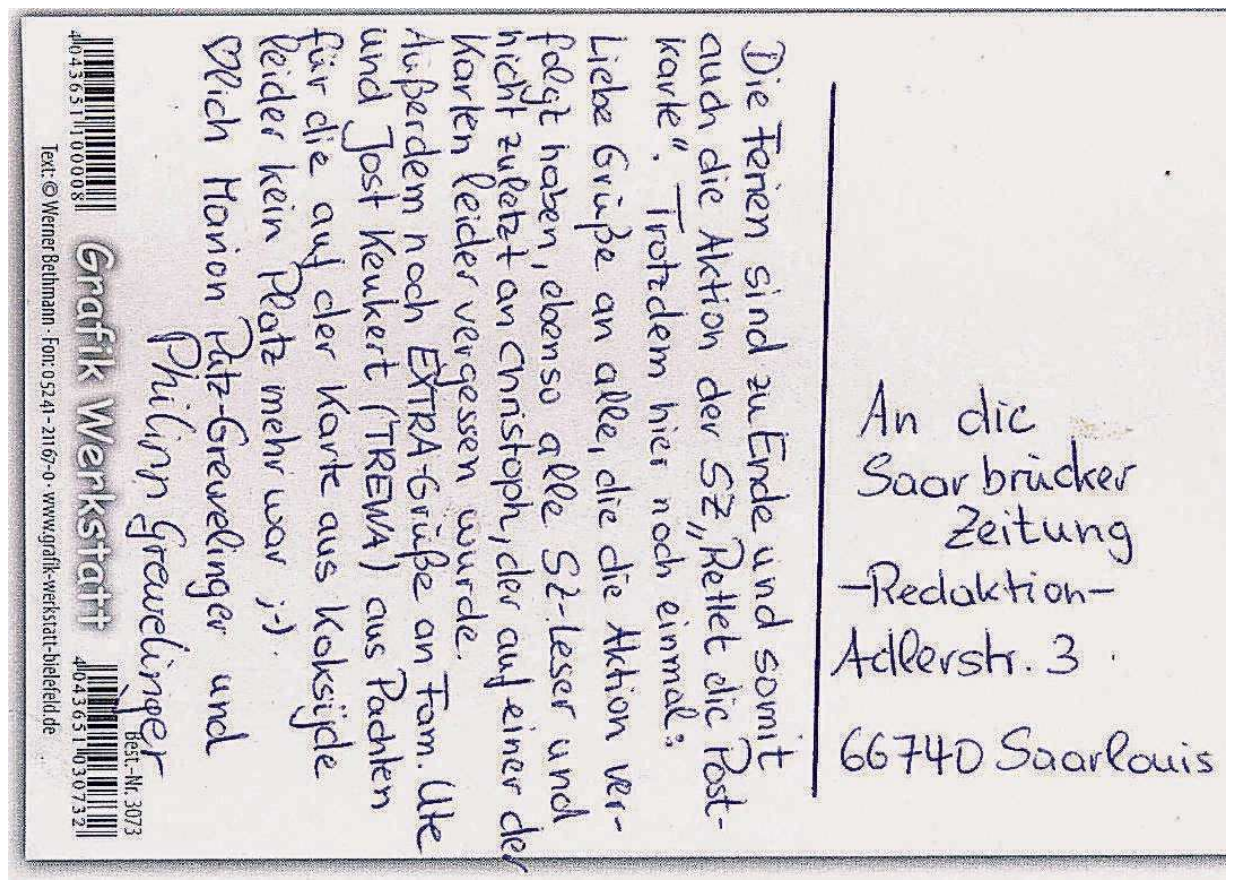 Die Ferien sind zu Ende und somit
auch die Aktion der SZ „Rettet die Post-
karte". Trotzdem hier noch einmal:
Liebe Grüße an alle, die die Aktion ver-
folgt haben, ebenso alle SZ-Leser und
nicht zuletzt an Christoph, der auf einer der
Karten leider vergessen wurde.
Außerdem noch EXTRA-Grüße an Fam. Ute
und Jost Keukert (TREWA) aus Pachten
für die auf der Karte aus Koksijde
leider kein Platz mehr war ;-).
♡lich Marion Putz-Grewelinger und
Philipp Grewelinger
An die
Saarbrücker
Zeitung
-Redaktion-
Adlerstr. 3
66740 Saarlouis
4 043651 100008
Grafik Werkstatt
Best.-Nr. 3073
4 043651 030732
Text: © Werner Bethmann · Fon: 05241-21167-0 · www.grafik-werkstatt-bielefeld.de